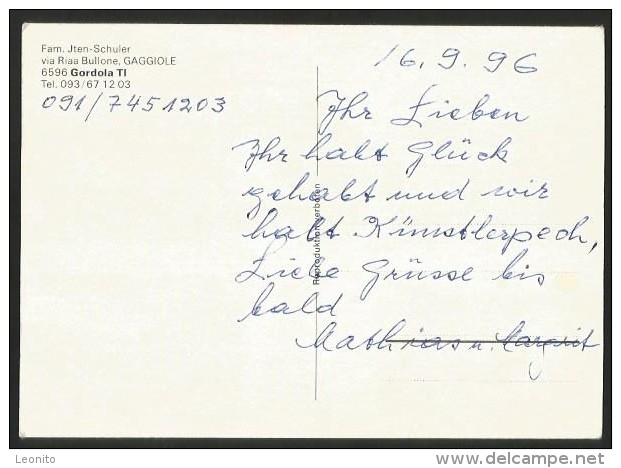 Fam. Jten-Schuler
via Riaa Bullone, GAGGIOLE
6596 Gordola TI
Tel. 093/67 12 03
091/7451203
16.9.96
Ihr Lieben
Ihr habt Glück
gehabt und wir
habt Künstlerpech,
Liebe Grüsse bis
bald
Mathias u. Margrit
Reproduktion verboten
Leonito
www.delcampe.net